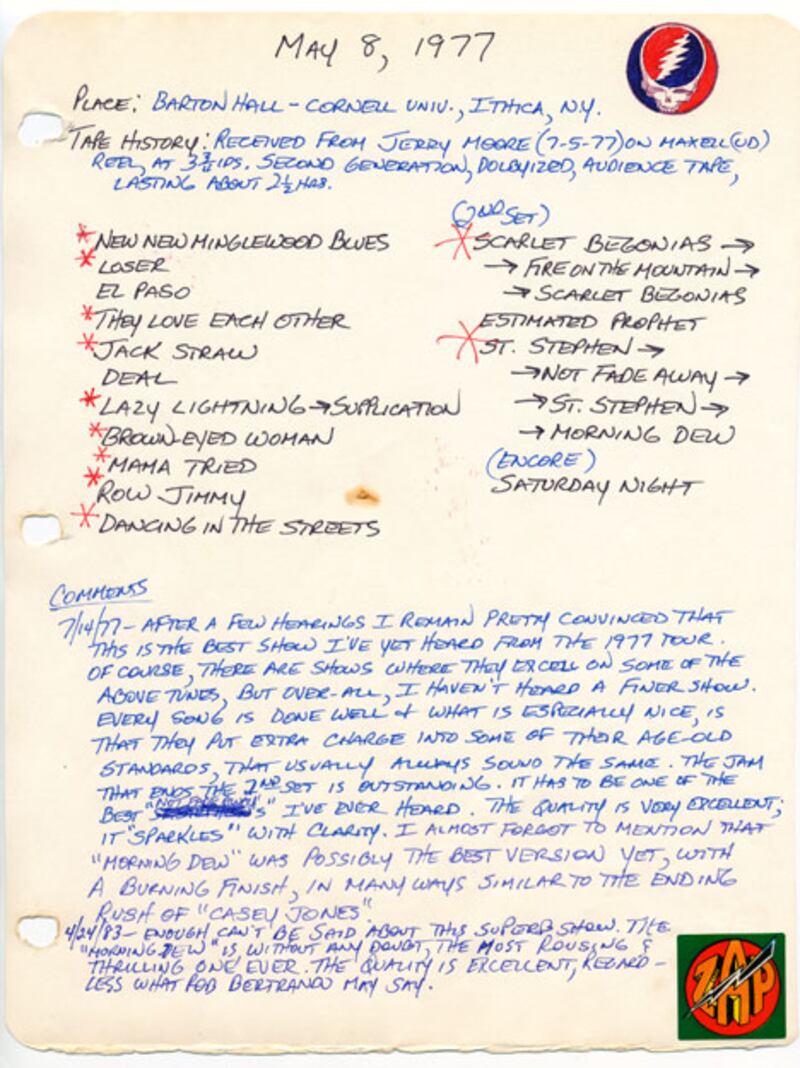 MAY 8, 1977
PLACE: BARTON HALL - CORNELL UNIV., ITHICA, N.Y.
TAPE HISTORY: RECEIVED FROM JERRY MOORE (7-5-77) ON MAXELL (UD)
REEL, AT 3 3/4 IPS. SECOND GENERATION, DOLBYIZED, AUDIENCE TAPE,
LASTING ABOUT 2 1/2 HRS.
* NEW NEW MINGLEWOOD BLUES
* LOSER
EL PASO
* THEY LOVE EACH OTHER
* JACK STRAW
DEAL
* LAZY LIGHTNING → SUPPLICATION
* BROWN-EYED WOMAN
* MAMA TRIED
* ROW JIMMY
* DANCING IN THE STREETS
(2ND SET)
* SCARLET BEGONIAS →
→ FIRE ON THE MOUNTAIN →
→ SCARLET BEGONIAS
ESTIMATED PROPHET
* ST. STEPHEN →
→ NOT FADE AWAY →
→ ST. STEPHEN →
→ MORNING DEW
(ENCORE)
SATURDAY NIGHT
COMMENTS
7/14/77 - AFTER A FEW HEARINGS I REMAIN PRETTY CONVINCED THAT
THIS IS THE BEST SHOW I'VE YET HEARD FROM THE 1977 TOUR.
OF COURSE, THERE ARE SHOWS WHERE THEY EXCELL ON SOME OF THE
ABOVE TUNES, BUT OVER-ALL, I HAVEN'T HEARD A FINER SHOW.
EVERY SONG IS DONE WELL & WHAT IS ESPECIALLY NICE, IS
THAT THEY PUT EXTRA CHARGE INTO SOME OF THEIR AGE-OLD
STANDARDS, THAT USUALLY ALWAYS SOUND THE SAME. THE JAM
THAT ENDS THE 2ND SET IS OUTSTANDING. IT HAS TO BE ONE OF THE
BEST "NOT FADE AWAY'S" I'VE EVER HEARD. THE QUALITY IS VERY EXCELLENT;
IT "SPARKLES" WITH CLARITY. I ALMOST FORGOT TO MENTION THAT
"MORNING DEW" WAS POSSIBLY THE BEST VERSION YET, WITH
A BURNING FINISH, IN MANY WAYS SIMILAR TO THE ENDING
RUSH OF "CASEY JONES".
4/24/83 - ENOUGH CAN'T BE SAID ABOUT THIS SUPERB SHOW. THE
"MORNING DEW" IS, WITHOUT ANY DOUBT, THE MOST ROUSING &
THRILLING ONE, EVER. THE QUALITY IS EXCELLENT, REGARD-
LESS WHAT ROB BERTRANDO MAY SAY.
ZAP